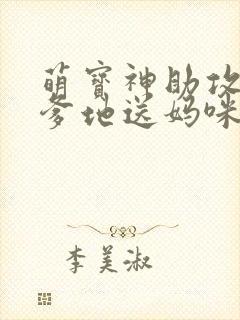 萌宝神助攻
爹地送妈咪
李美淑